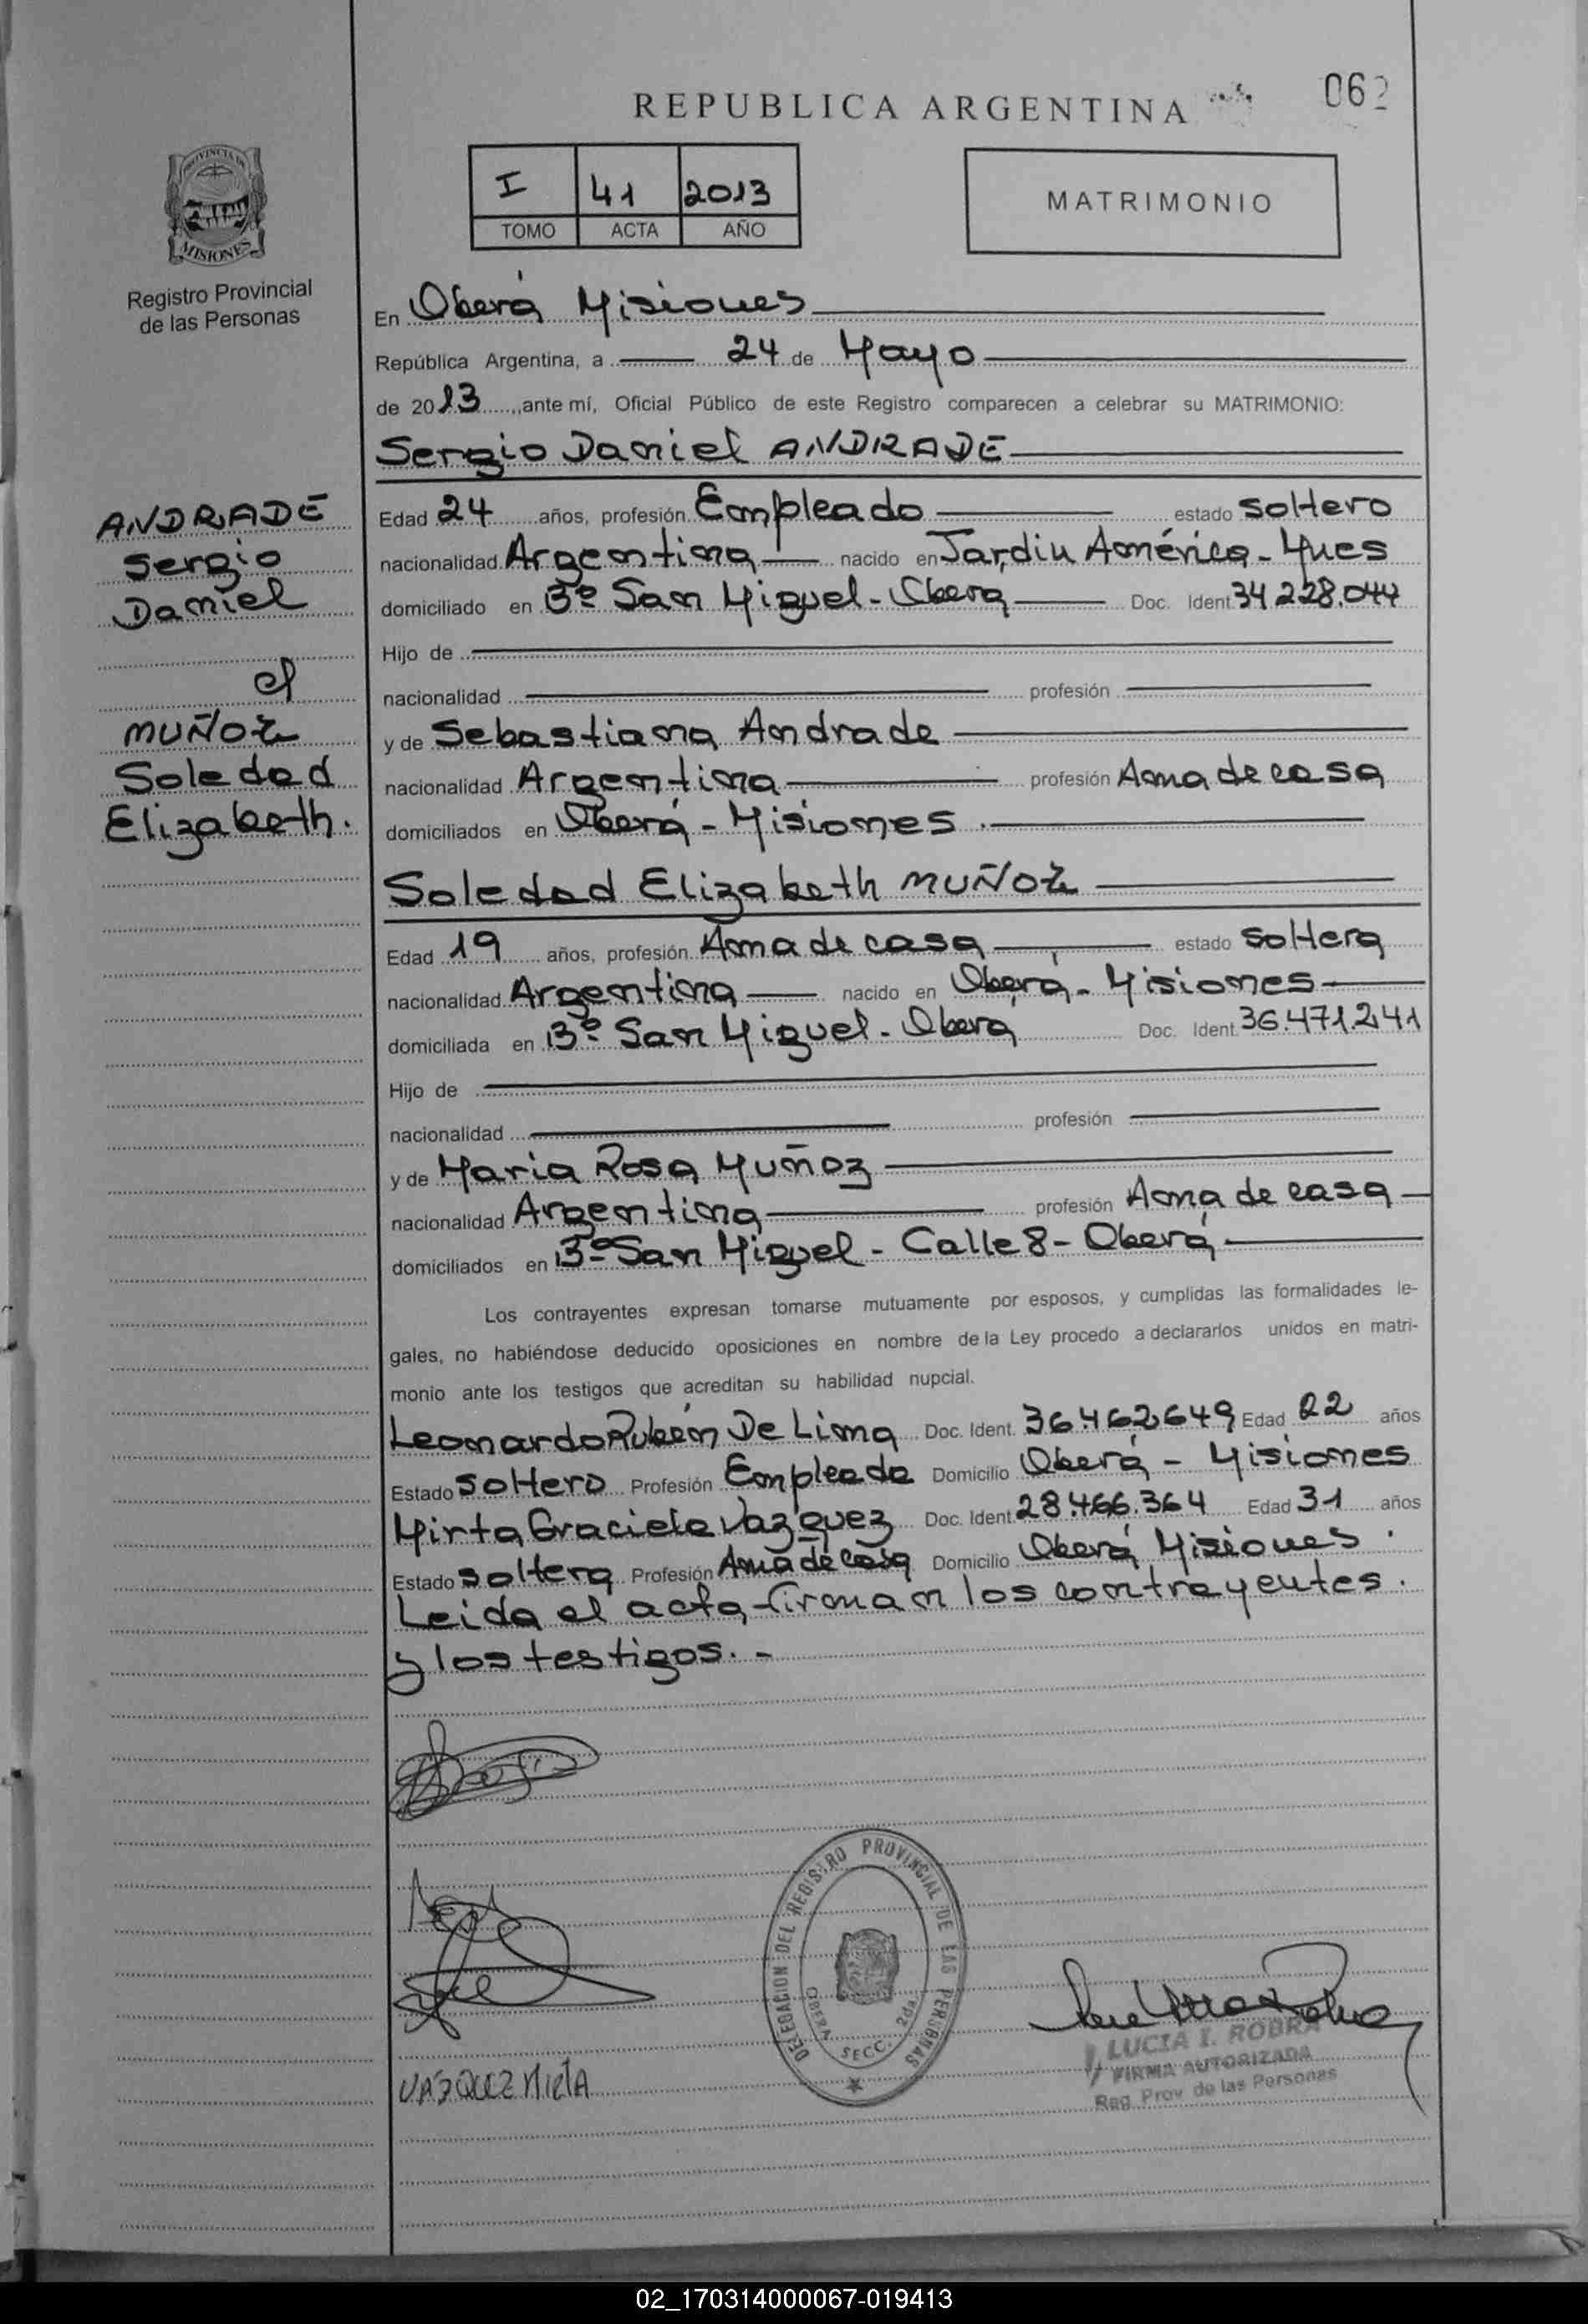 REPUBLICA ARGENTINA
062
I 41 2013
TOMO ACTA AÑO
MATRIMONIO
PROVINCIA DE
MISIONES
Registro Provincial
de las Personas
En Oberá Misiones
República Argentina, a 24 de Mayo
de 2013, ante mí, Oficial Público de este Registro comparecen a celebrar su MATRIMONIO:
Sergio Daniel ANDRADE
ANDRADE
Sergio
Daniel
c/
MUÑOZ
Soledad
Elizabeth.
Edad 24 años, profesión Empleado estado Soltero
nacionalidad Argentina nacido en Jardin América - Mnes
domiciliado en Bº San Miguel - Oberá Doc. Ident. 34.228.044
Hijo de
nacionalidad profesión
y de Sebastiana Andrade
nacionalidad Argentina profesión Ama de casa
domiciliados en Oberá - Misiones.
Soledad Elizabeth MUÑOZ
Edad 19 años, profesión Ama de casa estado Soltera
nacionalidad Argentina nacido en Oberá - Misiones
domiciliada en Bº San Miguel - Oberá Doc. Ident. 36.471.241
Hijo de
nacionalidad profesión
y de Maria Rosa Muñoz
nacionalidad Argentina profesión Ama de casa
domiciliados en Bº San Miguel - Calle 8 - Oberá
Los contrayentes expresan tomarse mutuamente por esposos, y cumplidas las formalidades le-
gales, no habiéndose deducido oposiciones en nombre de la Ley procedo a declararlos unidos en matri-
monio ante los testigos que acreditan su habilidad nupcial.
Leonardo Rubén De Lima Doc. Ident. 36.462.649 Edad 22 años
Estado Soltero Profesión Empleado Domicilio Oberá - Misiones
Mirta Graciela Vazquez Doc. Ident. 28.466.364 Edad 31 años
Estado Soltera Profesión Ama de casa Domicilio Oberá Misiones.
Leida el acta firman los contrayentes.
y los testigos. -
DELEGACION DEL REGISTRO PROVINCIAL DE LAS PERSONAS
OBERA SECC. 2da.
VAZQUEZ MIRTA
LUCIA I. ROBRA
FIRMA AUTORIZADA
Reg. Prov. de las Personas
02_170314000067-019413